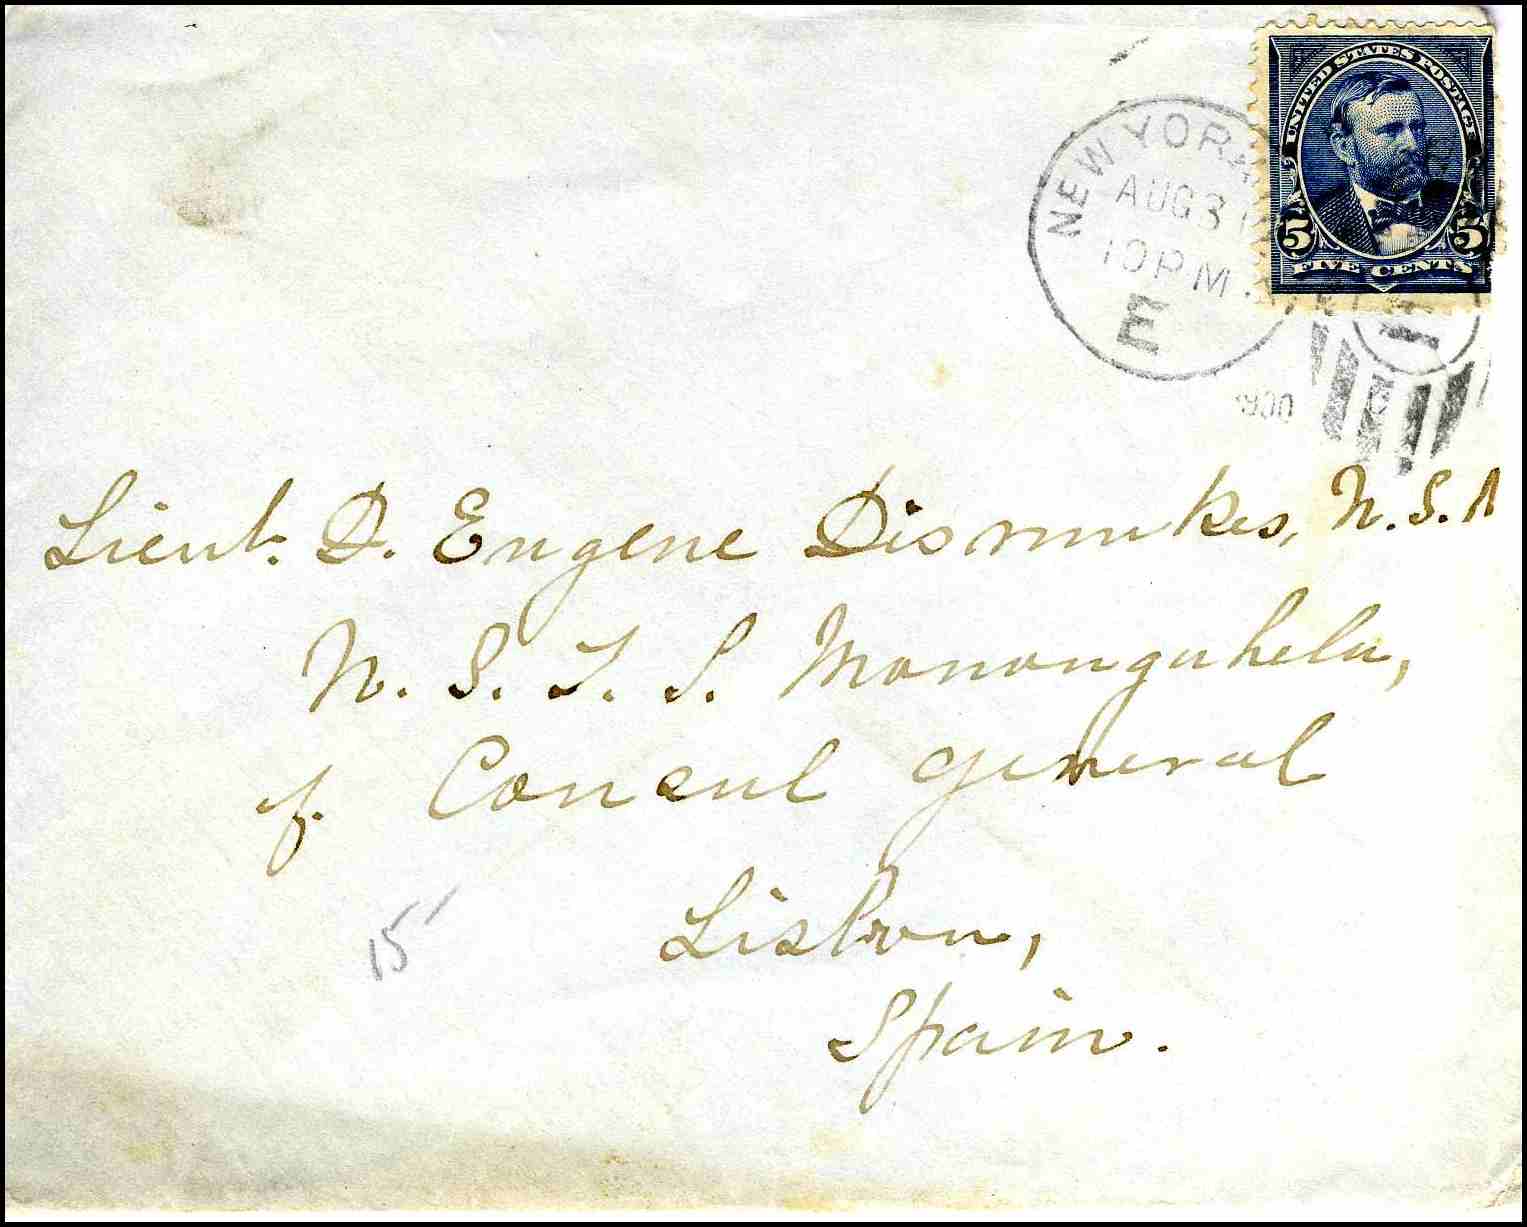 UNITED STATES POSTAGE
5 5
FIVE CENTS
NEW YORK
AUG 3
10 PM
E
Lieut. D. Eugene Dismukes, U.S.N
U.S.T.S. Monongahela,
Consul General
Lisbon,
Spain.
15